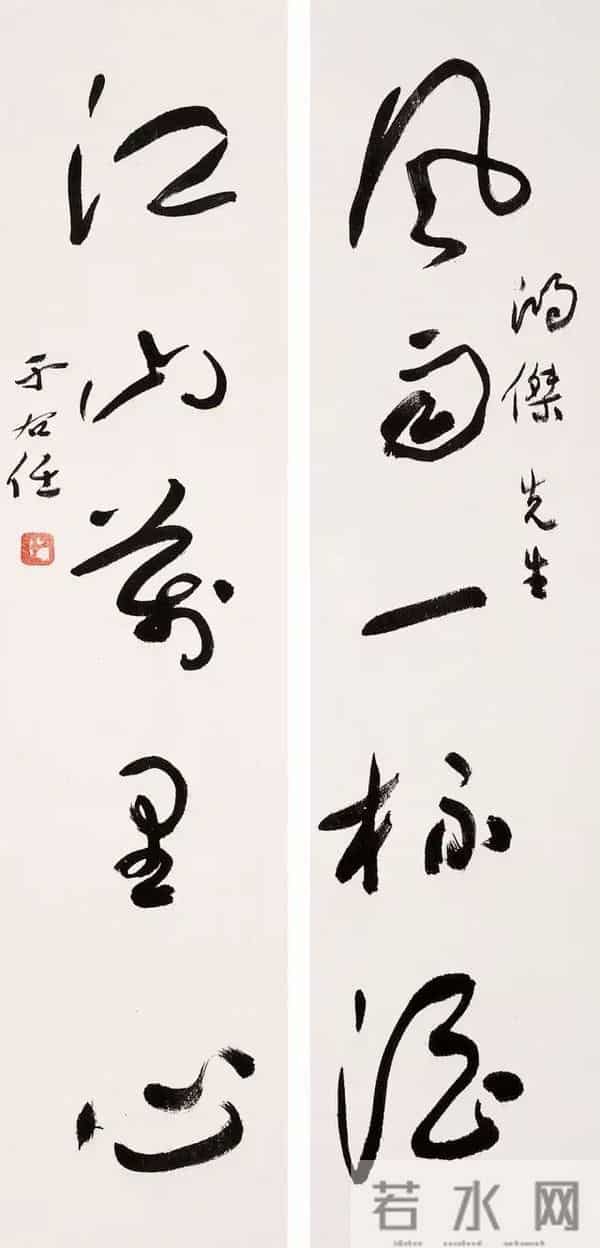 风雨一杯酒
鴻傑先生
江山萬里心
于右任
若水网